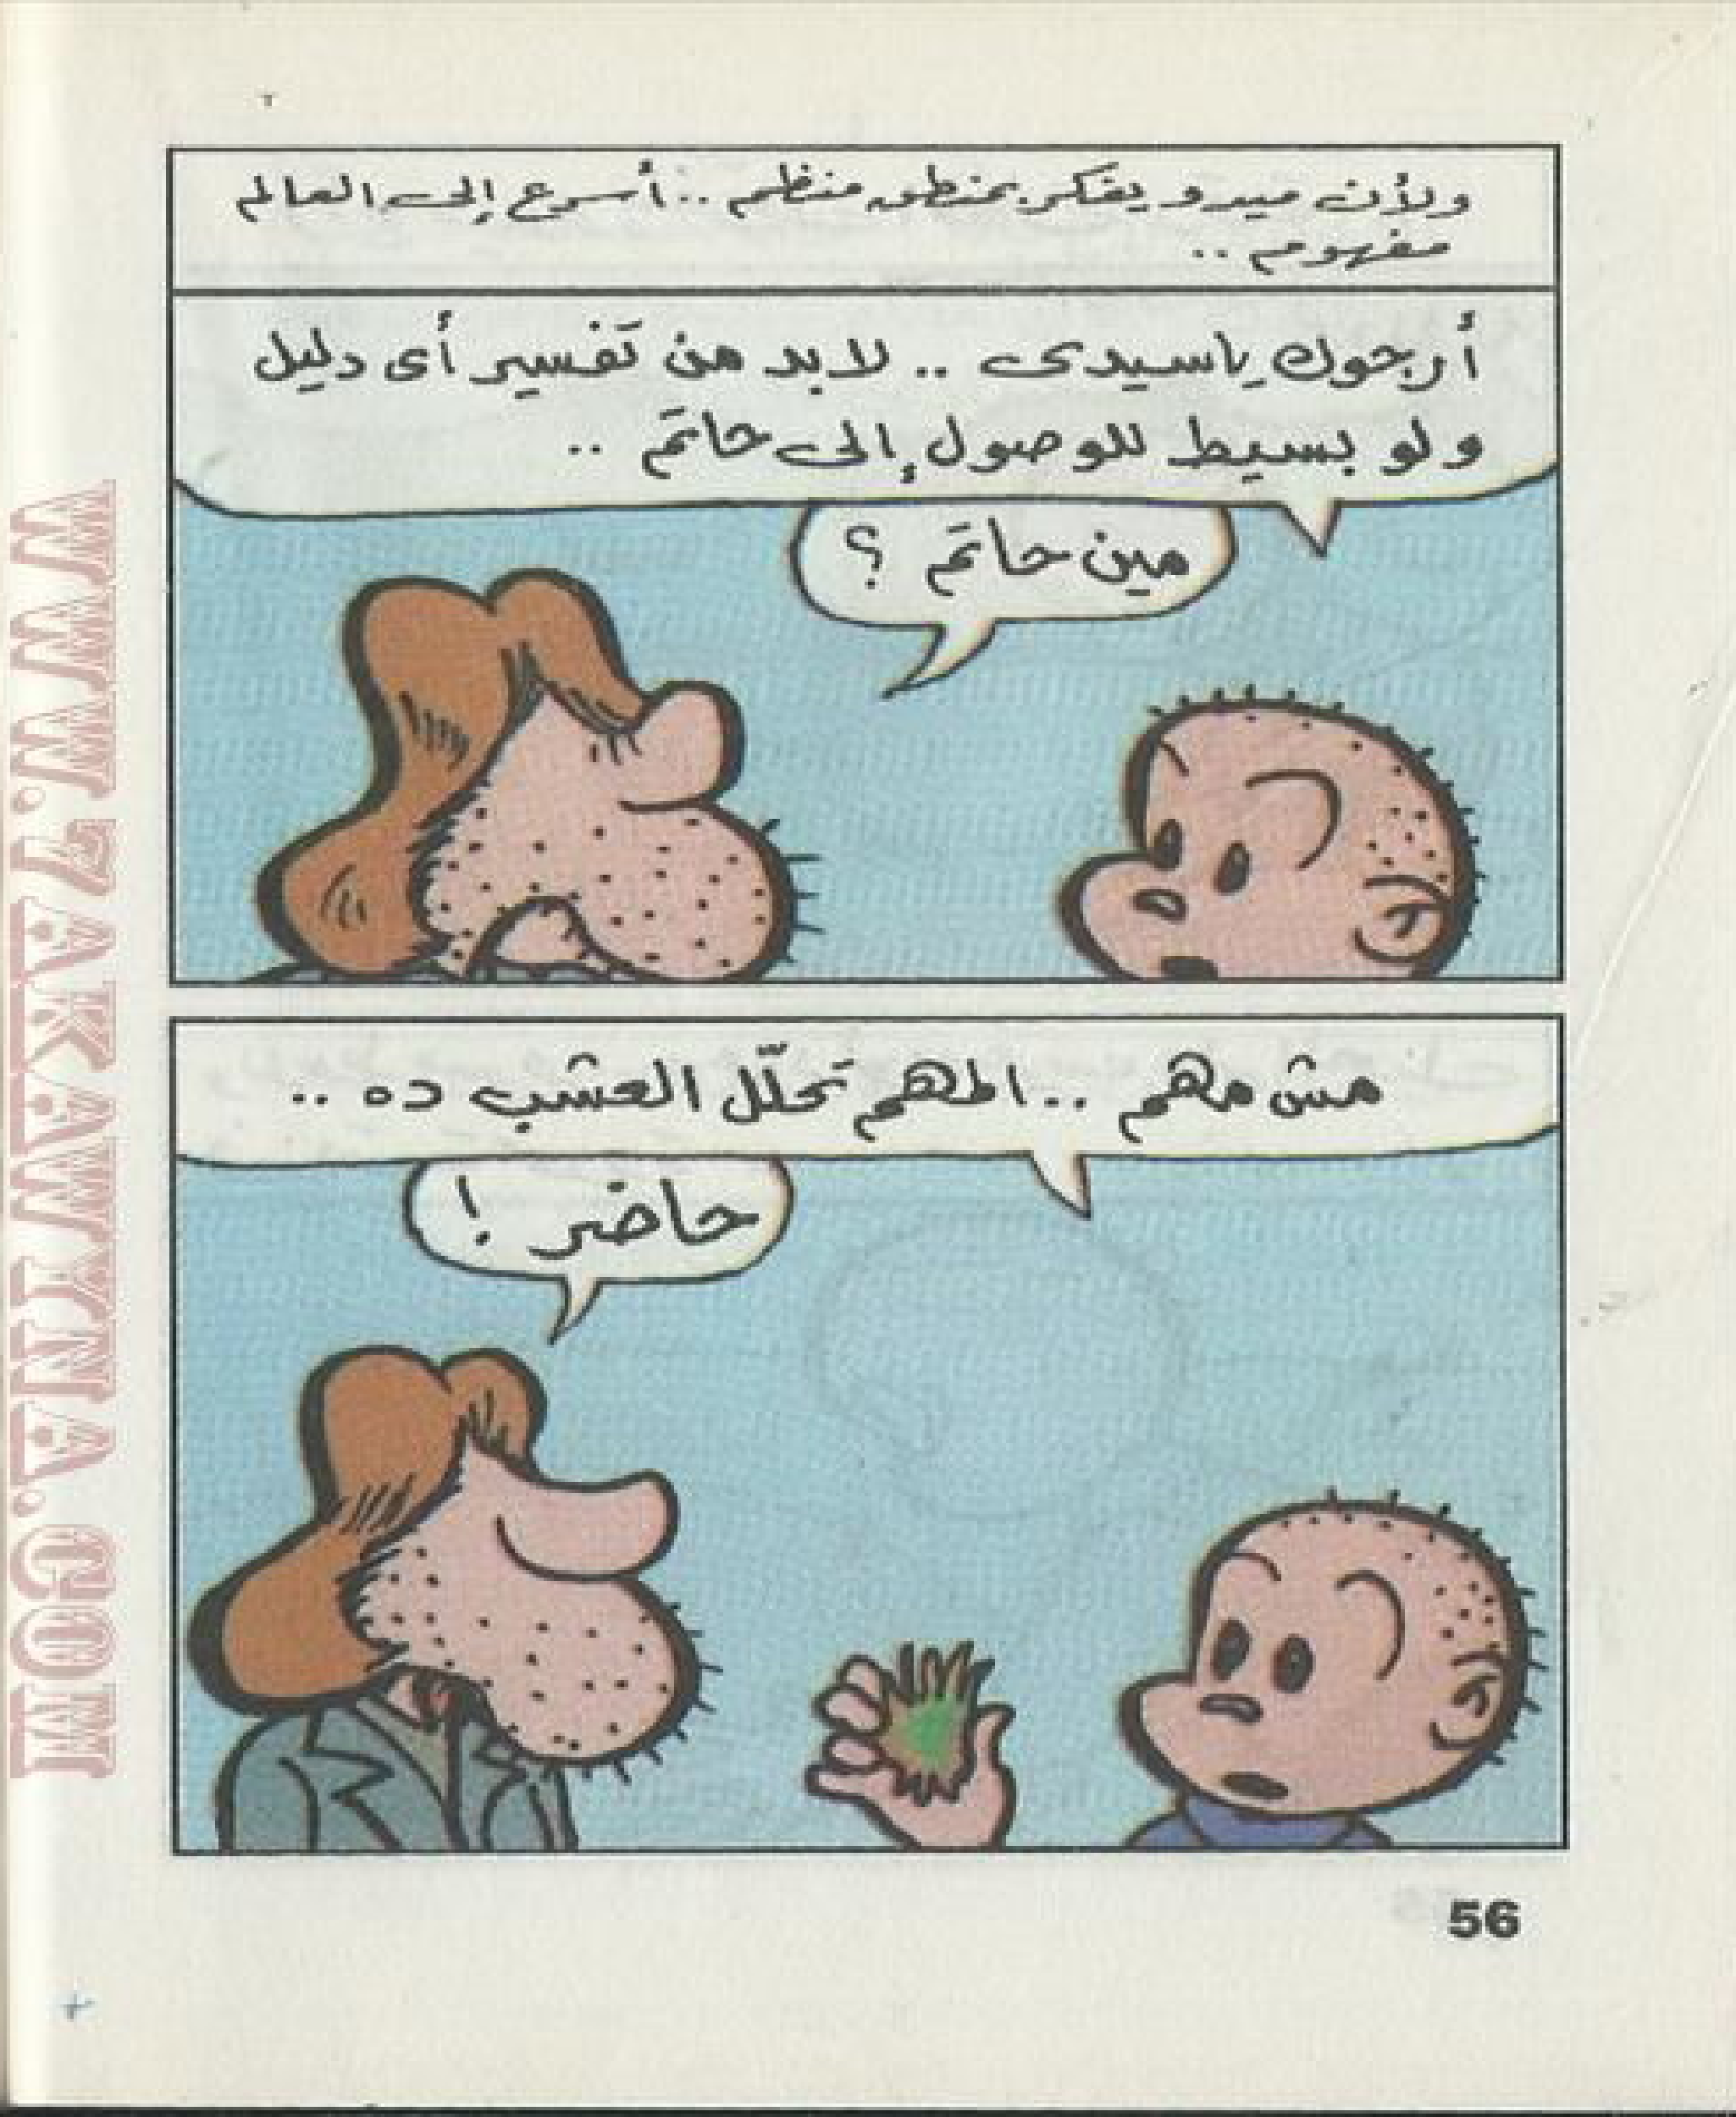 ولأن ميدو يفكر بمنطق منظم .. أسرع إلى العالم
مفهوم ..
أرجوك ياسيدى .. لابد من تفسير أى دليل
ولو بسيط للوصول إلى حاتم ..
مين حاتم ؟
مش مهم .. المهم تحلّل العشب ده ..
حاضر !
56
WWW.7AKAWINA.COM